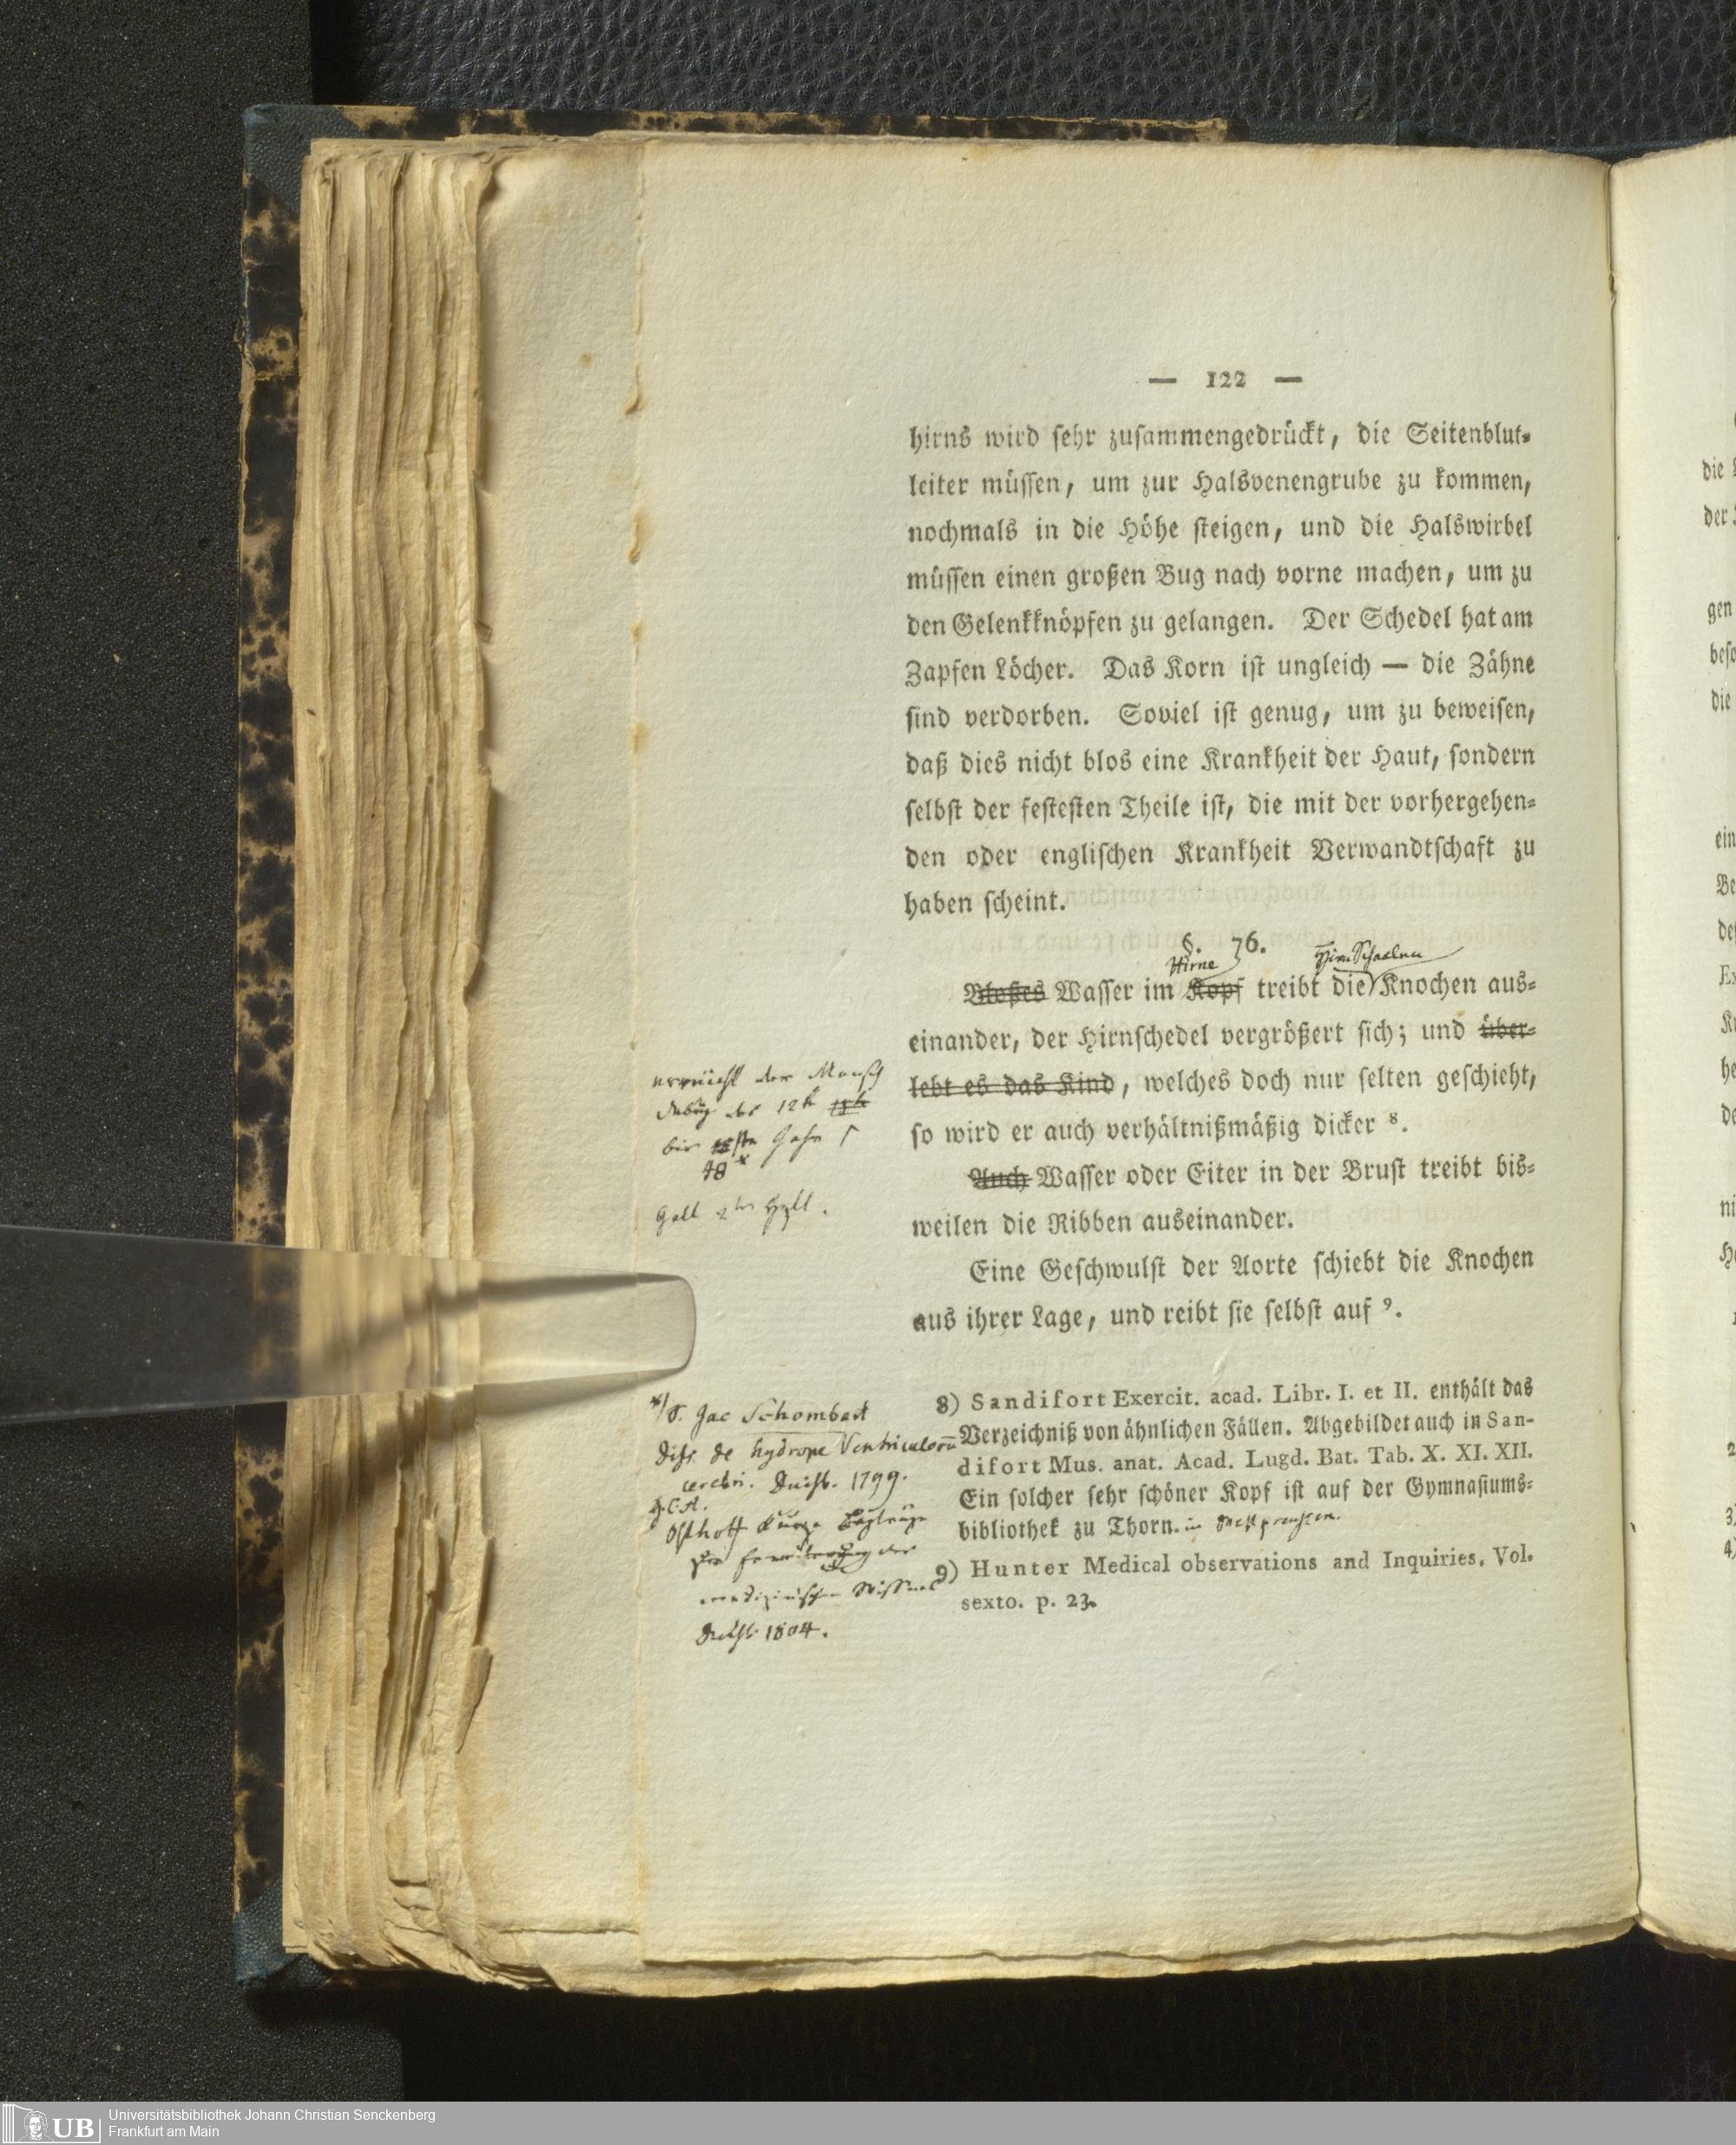 — 122 —
hirns wird ſehr zuſammengedrückt, die Seitenblut⸗
leiter müſſen, um zur Halsvenengrube zu kommen,
nochmals in die Höhe ſteigen, und die Halswirbel
müſſen einen großen Bug nach vorne machen, um zu
den Gelenkknöpfen zu gelangen. Der Schedel hat am
Zapfen Löcher. Das Korn iſt ungleich — die Zähne
ſind verdorben. Soviel iſt genug, um zu beweiſen,
daß dies nicht blos eine Krankheit der Haut, ſondern
ſelbſt der feſteſten Theile iſt, die mit der vorhergehen⸗
den oder engliſchen Krankheit Verwandtſchaft zu
haben ſcheint.
§. 76.
Hirne HirnSchaalen
Bloßes Waſſer im Kopf treibt die Knochen aus⸗
einander, der Hirnſchedel vergrößert ſich; und über⸗
lebt es das Kind, welches doch nur ſelten geſchieht,
ſo wird er auch verhältnißmäßig dicker ⁸.
Auch Waſſer oder Eiter in der Bruſt treibt bis⸗
weilen die Ribben auseinander.
Eine Geſchwulſt der Aorte ſchiebt die Knochen
aus ihrer Lage, und reibt ſie ſelbſt auf ⁹.
8) Sandifort Exercit. acad. Libr. I. et II. enthält das
Verzeichniß von ähnlichen Fällen. Abgebildet auch in San-
difort Mus. anat. Acad. Lugd. Bat. Tab. X. XI. XII.
Ein ſolcher ſehr ſchöner Kopf iſt auf der Gymnaſiums⸗
bibliothek zu Thorn. in
9) Hunter Medical observations and Inquiries. Vol.
sexto. p. 23.
erreicht der Mensch
12
bis Jahr
48
Gall
Jac Schombart
diss. de hydrope Ventriculorū
cerebri. Duisb. 1799.
Osthoff kurze Beyträge
zur der
medizinischen
Duisb. 1804.
die
der
gen
die
UB
Universitätsbibliothek Johann Christian Senckenberg
Frankfurt am Main